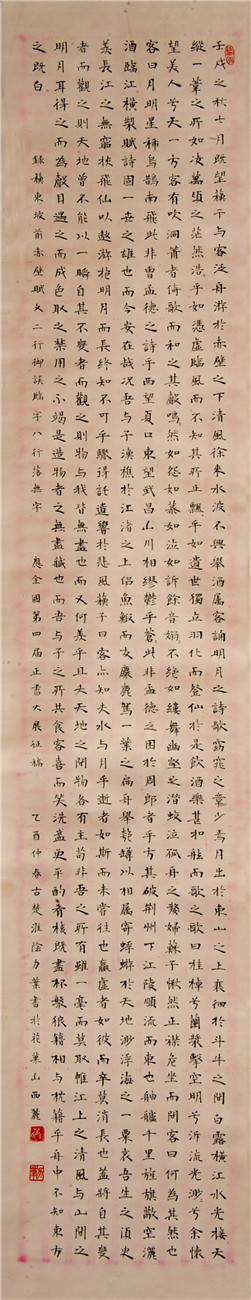 壬戌之秋七月既望蘇子与客泛舟游於赤壁之下清風徐来水波不興舉酒属客誦明月之詩歌窈窕之章少焉月出於東山之上徘徊於斗牛之間白露横江水光接天
縱一葦之所如凌萬頃之茫然浩乎如憑虚臨風而不知其所止飄乎如遺世獨立羽化而登仙於是飲酒樂甚扣舷而歌之歌曰桂棹兮蘭槳擊空明兮泝流光渺兮余懷
望美人兮天一方客有吹洞簫者倚歌而和之其聲嗚然如怨如慕如泣如訴餘音嫋不絶如縷舞幽壑之潛蛟泣孤舟之嫠婦蘇子愀然正襟危坐而問客曰何為其然也
客曰月明星稀烏鵲南飛此非曹孟德之詩乎西望夏口東望武昌山川相繆鬱乎蒼此非孟德之困於周郎者乎方其破荆州下江陵順流而東也舳艫千里旌旗蔽空灑
酒臨江横槊賦詩固一世之雄也而今安在哉况吾与子漁樵於江渚之上侣魚蝦而友麋鹿駕一葉之扁舟舉匏樽以相属寄蜉蝣於天地渺浮海之一粟哀吾生之須臾
羨長江之無窮挾飛仙以遨游抱明月而長終知不可乎驟得託遺響於悲風蘇子曰客亦知夫水与月乎逝者如斯而未嘗往也贏虚者如彼而卒莫消長也蓋將自其變
者而觀之則天地曾不能以一瞬自其不變者而觀之則物与我皆無盡也而又何羨乎且夫天地之間物各有主苟非吾之所有雖一毫而莫取惟江上之清風与山間之
明月耳得之而為聲目遇之而成色取之禁用之不竭是造物者之無盡藏也而吾与子之所共食客喜而笑洗盞更酌肴核既盡杯盤狼籍相与枕籍乎舟中不知東方
之既白 録蘇東坡前赤壁賦文二行御誤臨字八行落無字 應全國第四届正書大展征稿 乙酉仲春古楚淮陰力葉書於 葉山西麓